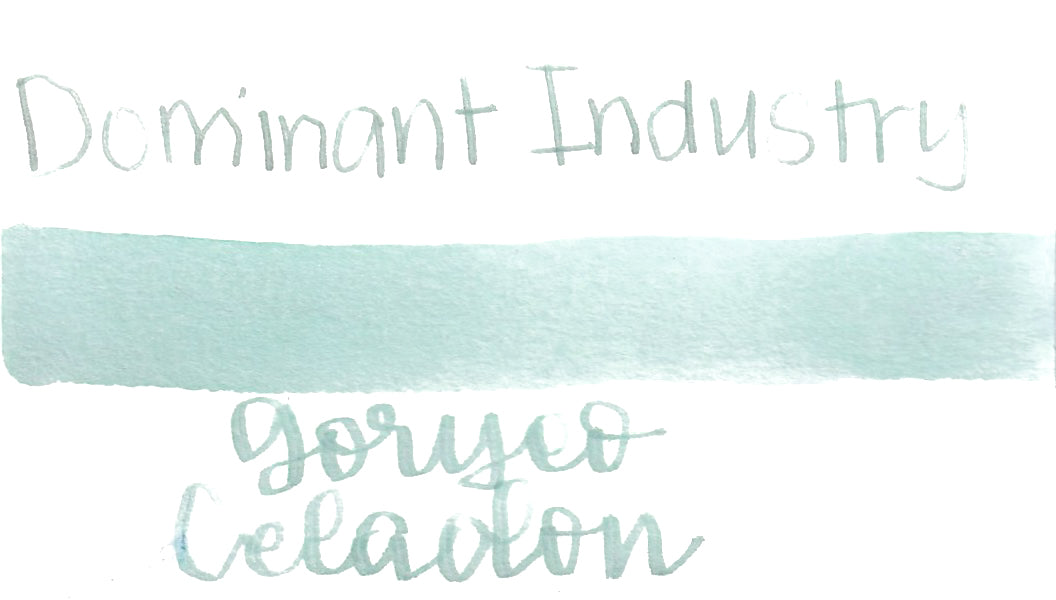 Dominant Industry
goryeo
Celadon